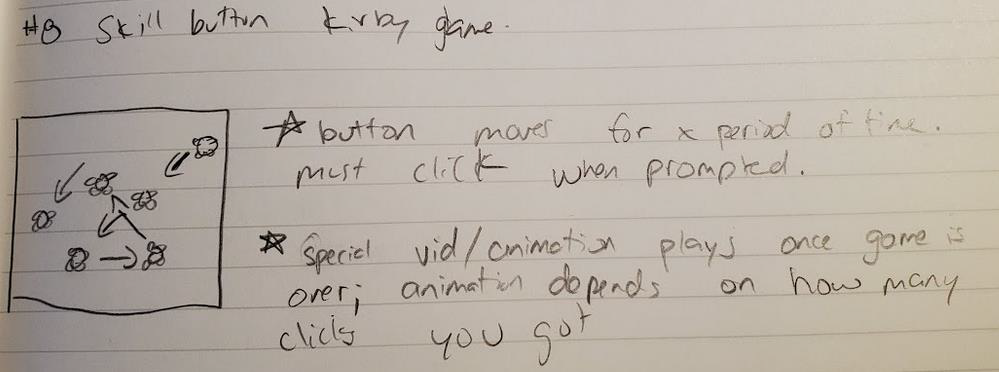 #8 Skill button Kirby game.
☆ button moves for x period of time.
must click when prompted.
☆ Special vid/animation plays once game is
over; animation depends on how many
clicks you got